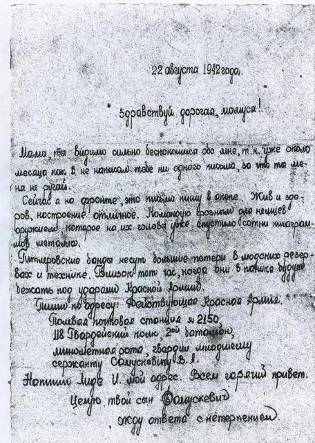 22 августа 1942 года.
Здравствуй дорогая, мамуся!
Мама, ты видимо сильно беспокоишся обо мне, т.к. уже около
месяца как я не написал тебе ни одного письма, за что ты ме-
ня не ругай.
Сейчас я на фронте, это письмо пишу в окопе. Жив и здо-
ров, настроение отличное. Командую грозным для немцев
оружием, которое на их головы уже выпустило сотни килограм-
мов металла.
Гитлеровские банды несут большие потери в людских резер-
вах и технике. Близок тот час, когда они в панике будут
бежать под ударами Красной Армии.
Пиши по адресу: Действующая Красная Армия,
Полевая почтовая станция № 2150,
118 Гвардейский полк 2ой батальон,
минометная рота гвардии младшему
сержанту В. А.
Напиши Лиде И. мой адрес. Всем горячий привет.
Целую твой сын
Жду ответа с нетерпением.